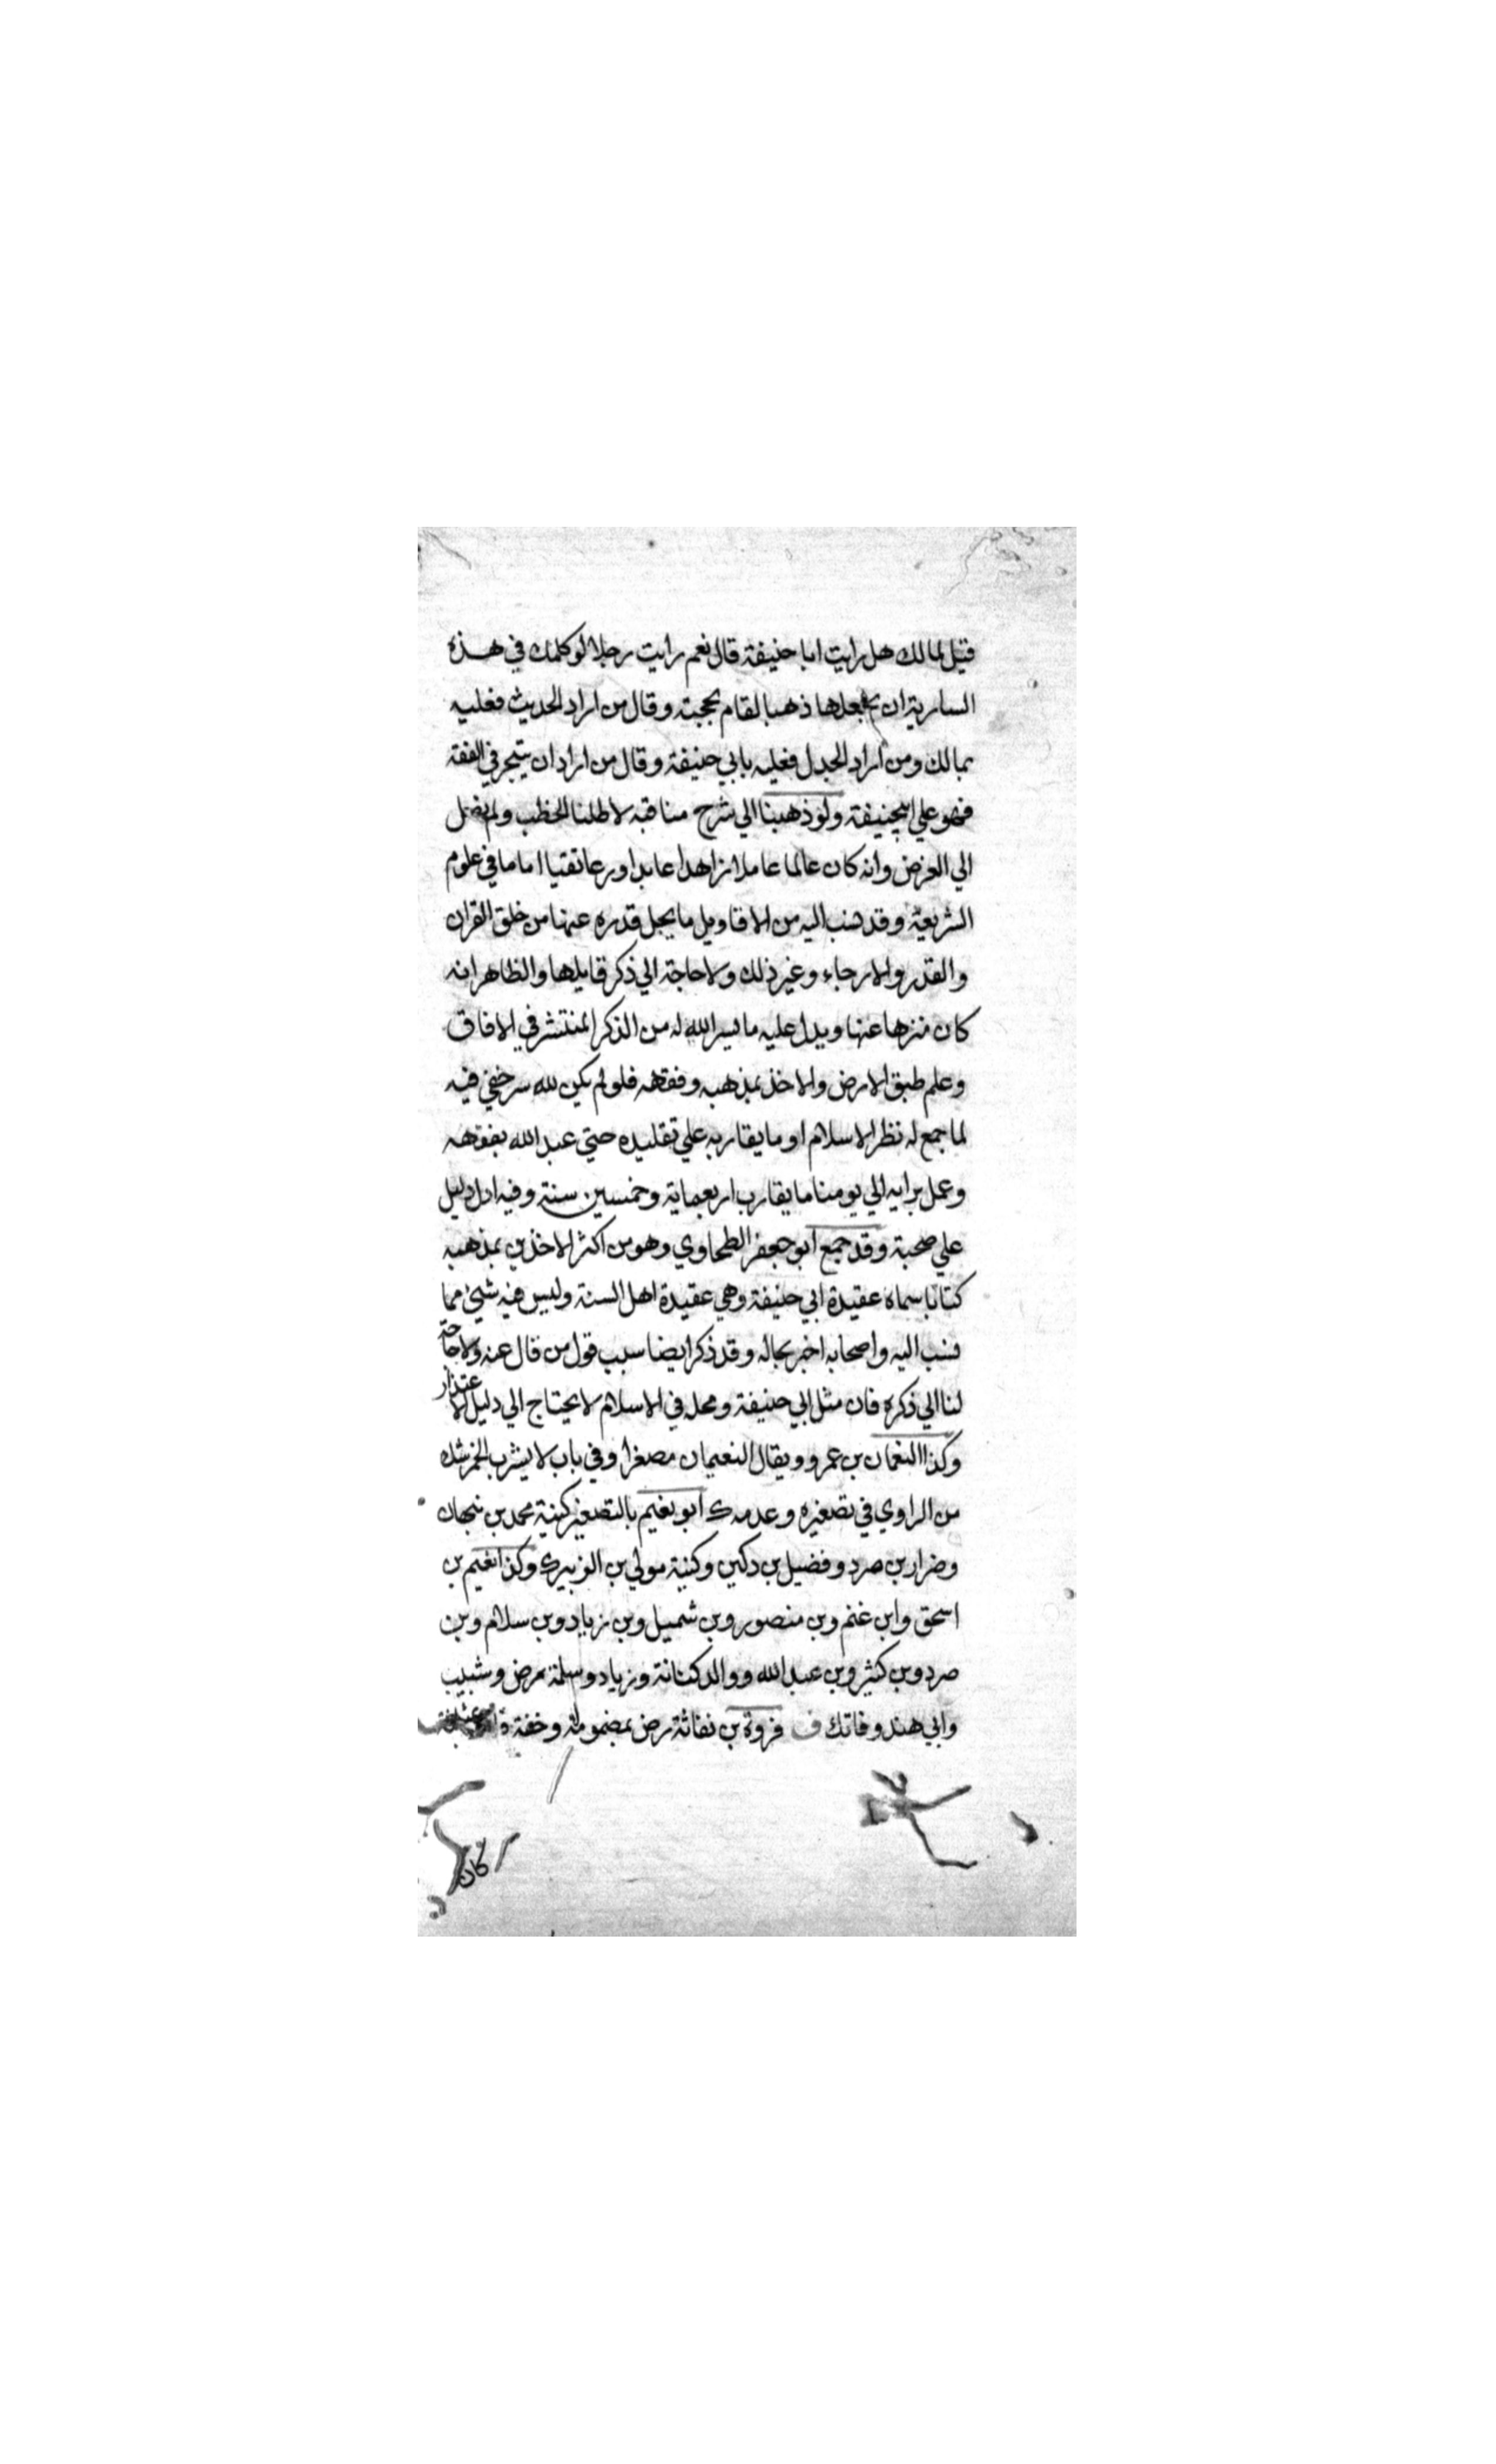 قيل لمالك هل رايت ابا حنيفة قال نعم رايت رجلا لو كلمك في هذه
السارية ان يجعلها ذهبا لقام بحجته وقال من اراد الحديث فعليه
بمالك ومن اراد الجدل فعليه بابي حنيفة وقال من اراد ان يتبحر في الفقه
فهو علي ابيحنيفة ولو ذهبنا الي شرح مناقبه لاطلنا الخطب ولم نصل
الي الغرض وانه كان عالما عاملا زاهدا عابدا ورعا تقيا اماما في علوم
الشريعة وقد نسب اليه من الاقاويل ما يجل قدره عنها من خلق القران
والقدر والارجاء وغير ذلك ولا حاجة الي ذكر قايلها والظاهر انه
كان منزها عنها ويدل عليه ما يسر الله له من الذكر المنتشر في الافاق
وعلم طبق الارض والاخذ بمذهبه وفقهه فلو لم يكن لله سر خفي فيه
لما جمع له نظر الاسلام او ما يقاربه علي تقليده حتي عبد الله بفقهه
وعمل برايه الي يومنا ما يقارب اربعماية وخمسين سنة وفيه ادل دليل
علي صحبة وقد جمع ابو جعفر الطحاوي وهو من اكثر الاخذين بمذهبه
كتابا سماه عقيدة ابي حنيفة وهي عقيدة اهل السنة وليس فيه شيئ مما
نسب اليه واصحابه اخبر بحاله وقد ذكر ايضا سبب قول من قال عنه ولا حاجة
لنا الي ذكره فان مثل ابي حنيفة ومحله في الاسلام لا يحتاج الي دليل الاعتذار
وكذا النعمان بن عمرو ويقال النعيمان مصغرا وفي باب لا يشرب الخمر شك
من الراوي في تصغيره وعدمه ك ابو نعيم بالتصغير كنية محمد بن
وضرار بن صرد وفضيل بن دكين وكنية مولي بن الزبيري وكذا نعيم بن
اسحق وابن غنم وبن منصور وبن شميل وبن زياد وبن سلام وبن
صرد وبن كثير وبن عبد الله ووالد كنانة وزياد وسلمة رض وشبيب
وابي هند وفاتك ف فروة بن نفاثة رض بمضمومة وخفة
كان